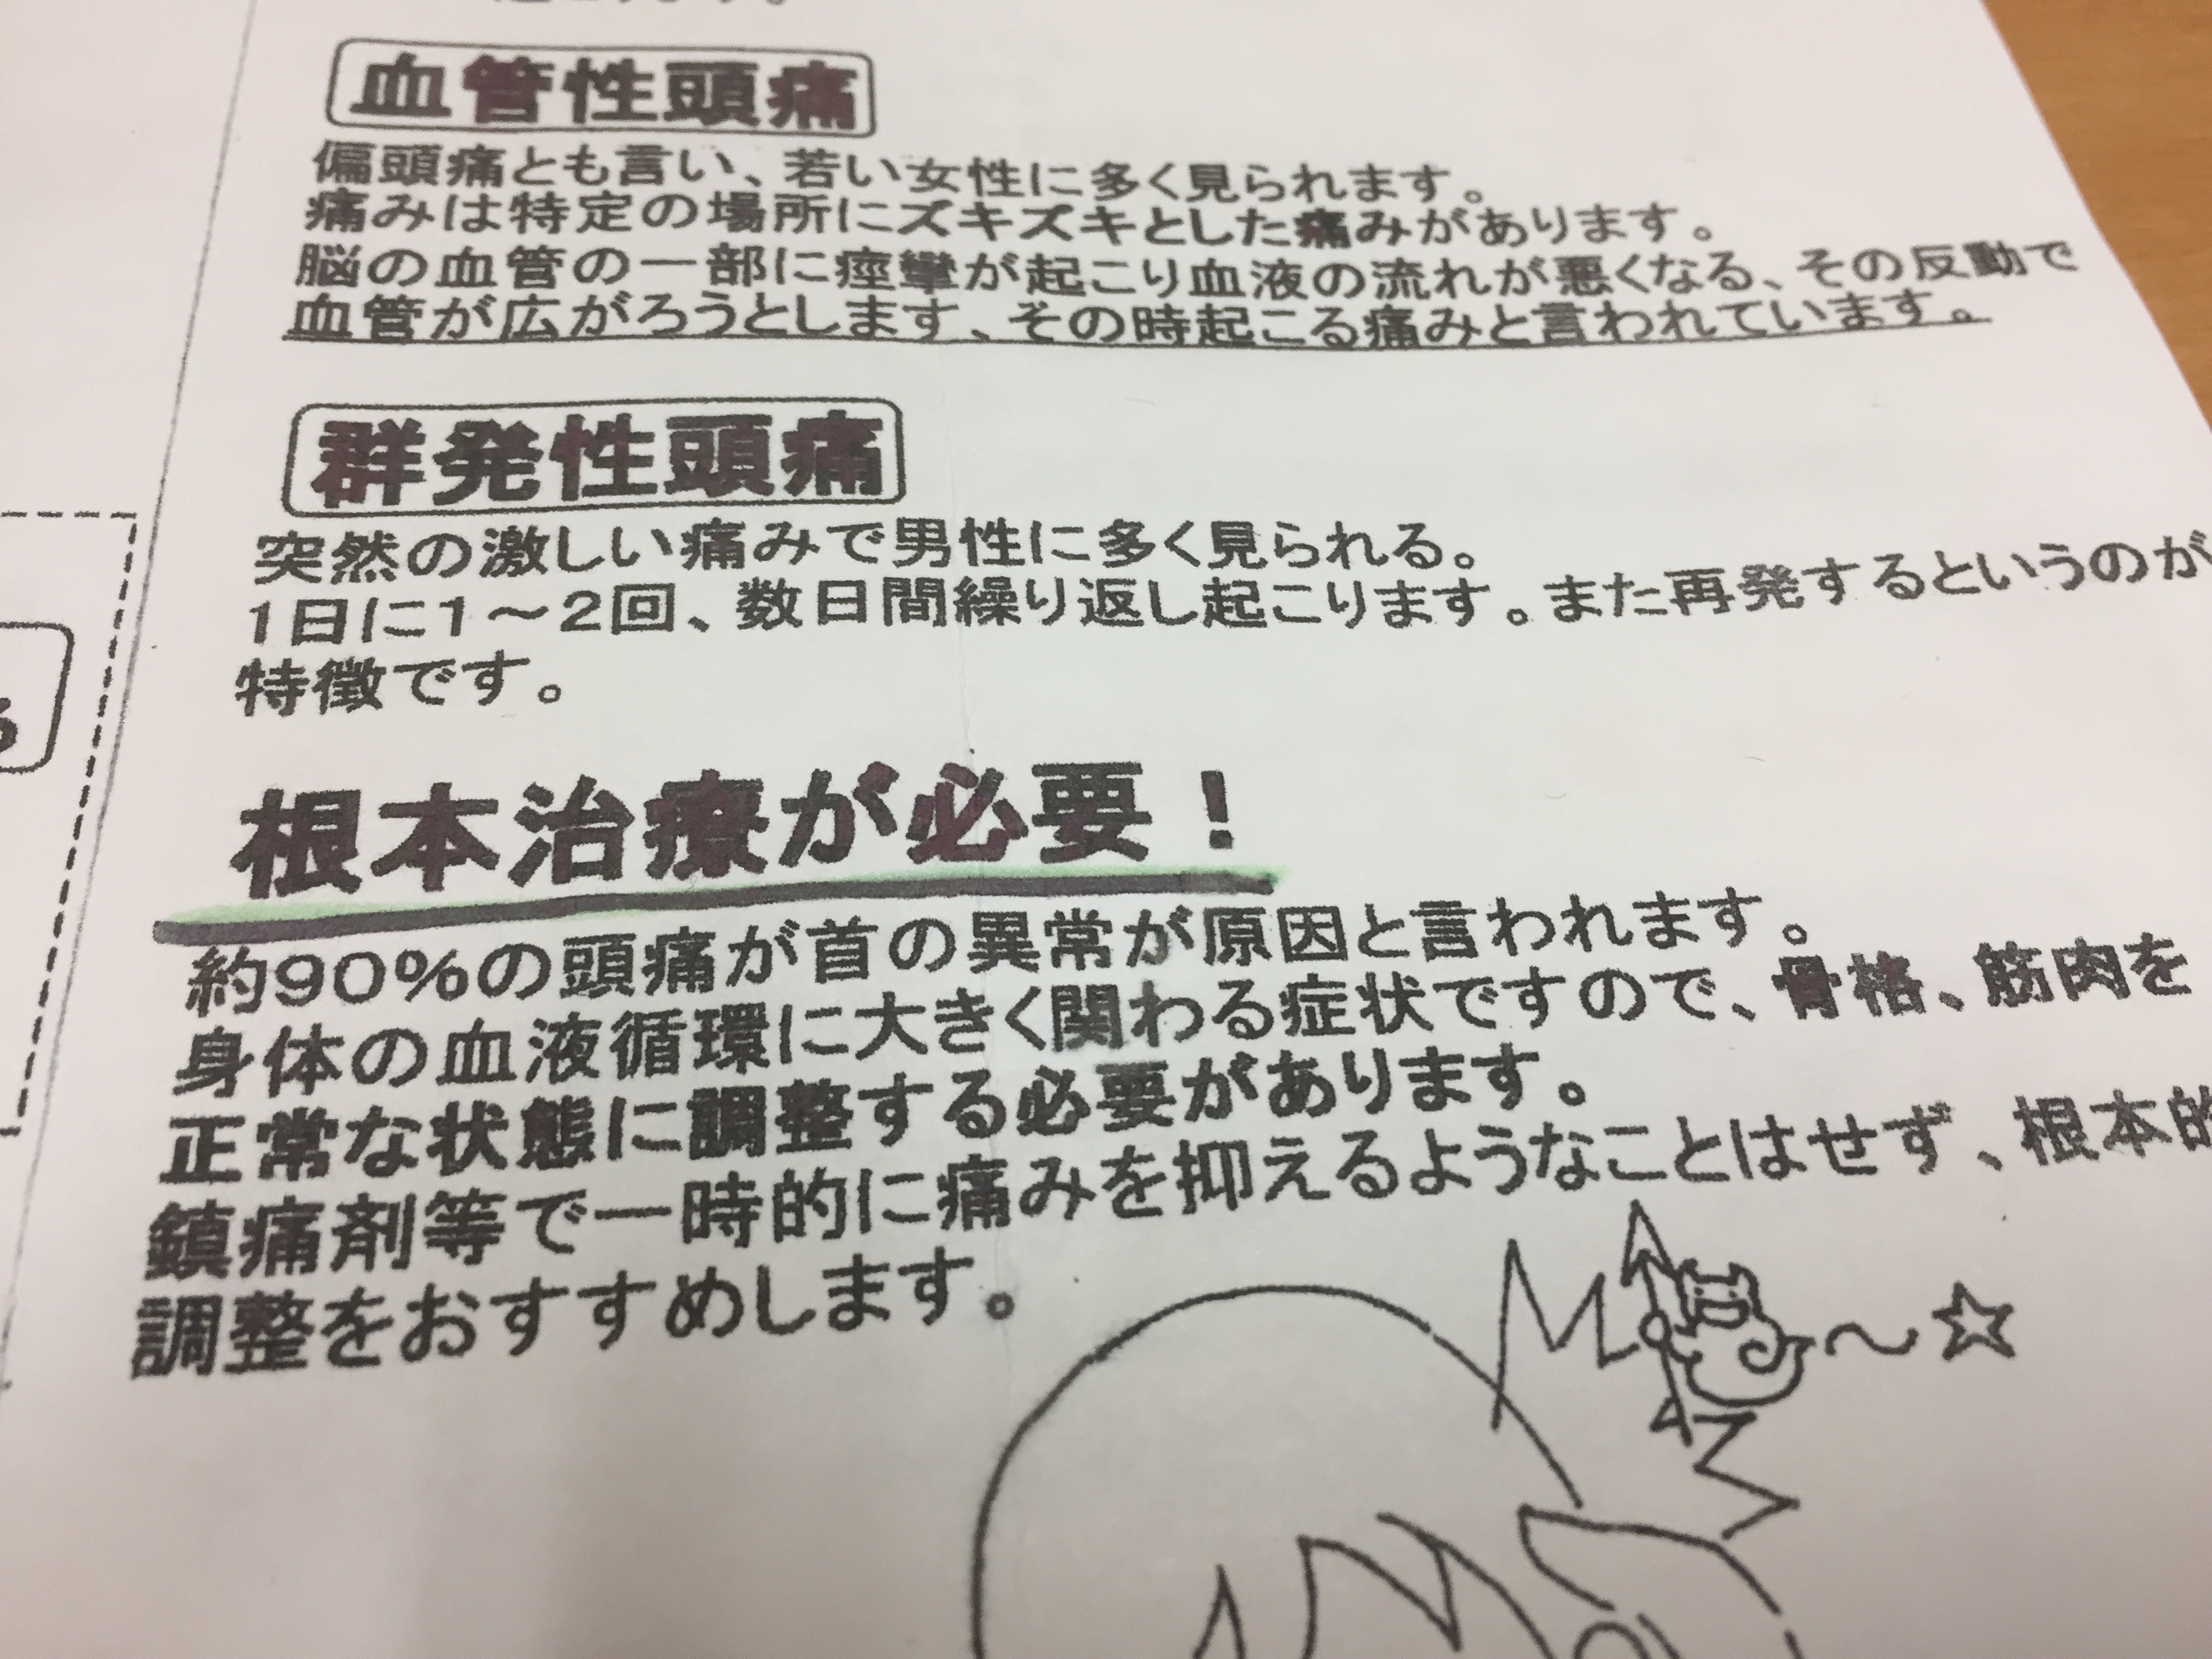 血管性頭痛
偏頭痛とも言い、若い女性に多く見られます。
痛みは特定の場所にズキズキとした痛みがあります。
脳の血管の一部に痙攣が起こり血液の流れが悪くなる、その反動で
血管が広がろうとします、その時起こる痛みと言われています。
群発性頭痛
突然の激しい痛みで男性に多く見られる。
1日に1〜2回、数日間繰り返し起こります。また再発するというのが
特徴です。
根本治療が必要！
約90%の頭痛が首の異常が原因と言われます。
身体の血液循環に大きく関わる症状ですので、骨格、筋肉を
正常な状態に調整する必要があります。
鎮痛剤等で一時的に痛みを抑えるようなことはせず、根本的
調整をおすすめします。